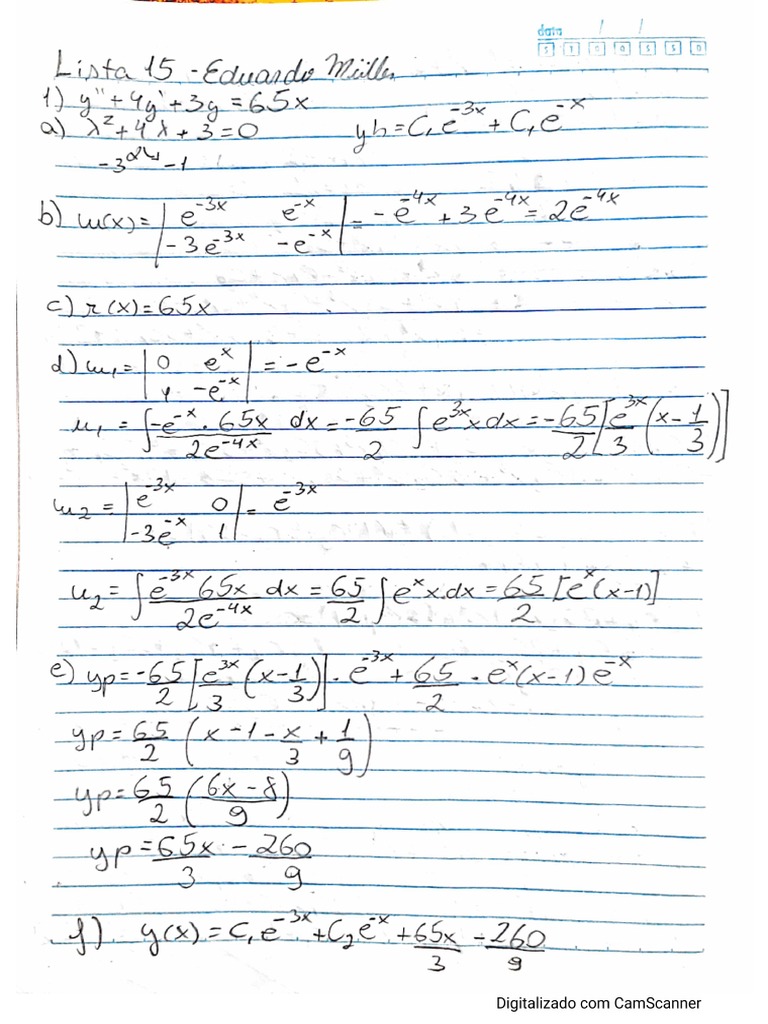 data / /
S T Q Q S S D
Lista 15 - Eduardo Müller
1) y'' + 4y' + 3y = 65x
a) λ² + 4λ + 3 = 0    yh = C₁e^{-3x} + C₁e^{-x}
-3 -1
b) w(x) = | e^{-3x}  e^{-x} | = -e^{-4x} + 3e^{-4x} = 2e^{-4x}
| -3e^{-3x}  -e^{-x} |
c) r(x) = 65x
d) w₁ = | 0  e^{x} | = -e^{-x}
| 1  -e^{-x} |
u₁ = ∫ (-e^{-x} · 65x)/(2e^{-4x}) dx = -65/2 ∫ e^{3x} x dx = -65/2 [e^{3x}/3 (x - 1/3)]
w₂ = | e^{-3x}  0 | = e^{-3x}
| -3e^{-x}  1 |
u₂ = ∫ (e^{-3x} 65x)/(2e^{-4x}) dx = 65/2 ∫ e^{x} x.dx = 65/2 [e^{x}(x-1)]
e) yp = -65/2 [e^{3x}/3 (x - 1/3)] · e^{-3x} + 65/2 · e^{x}(x-1) e^{-x}
yp = 65/2 (x - 1 - x/3 + 1/9)
yp = 65/2 ((6x - 8)/9)
yp = 65x/3 - 260/9
f) y(x) = C₁e^{-3x} + C₂e^{-x} + 65x/3 - 260/9
Digitalizado com CamScanner